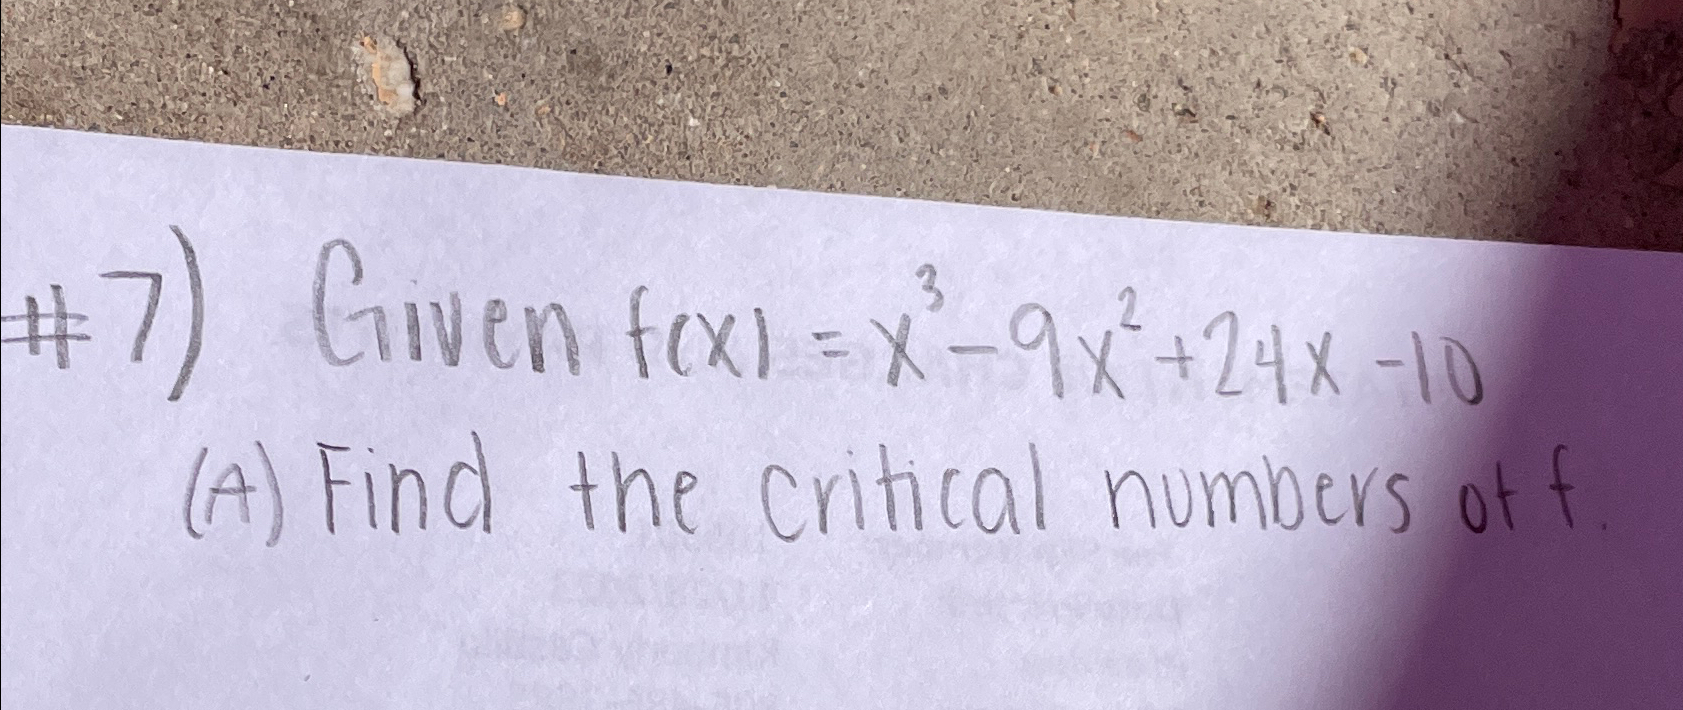 #7) Given f(x) = x³ - 9x² + 24x - 10
(A) Find the critical numbers of f.